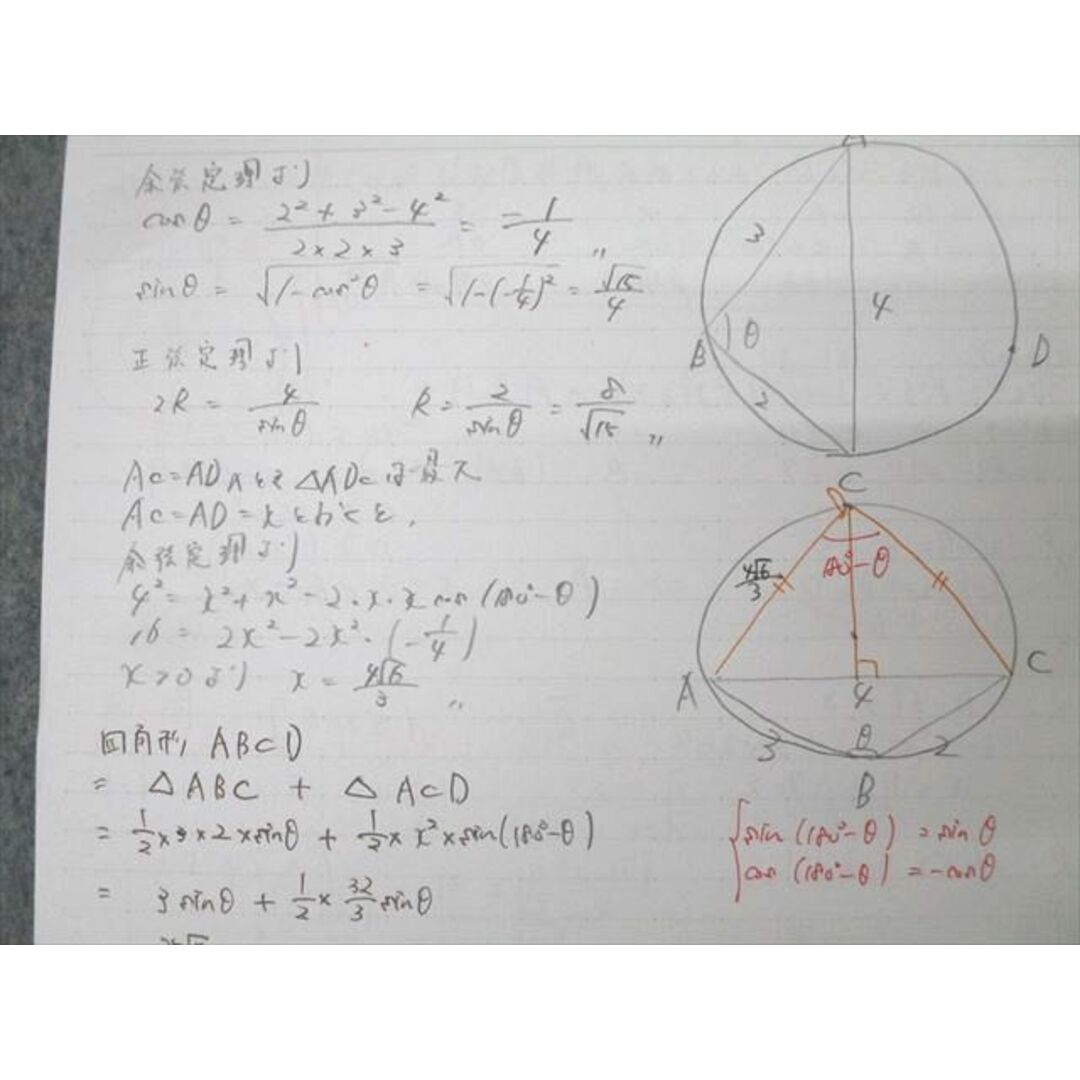 余弦定理より
cosθ = (2² + 3² - 4²)/(2×2×3) = -1/4 〃
sinθ = √(1-cos²θ) = √(1-(-1/4)²) = √15/4
正弦定理より
2R = 4/sinθ R = 2/sinθ = 8/√15 〃
AC=ADのとき △ADCは最大
AC=AD=xとおくと,
余弦定理より
4² = x² + x² - 2・x・x cos(180°-θ)
16 = 2x² - 2x²・(-1/4)
x>0より x = 4√6/3 〃
四角形ABCD
= △ABC + △ACD
= 1/2×3×2×sinθ + 1/2×x²×sin(180°-θ)
= 3sinθ + 1/2×32/3 sinθ
A
3
4
B
θ
D
2
C
D
4√6/3
180°-θ
A
4
C
3
θ
2
B
sin(180°-θ) = sinθ
cos(180°-θ) = -cosθ